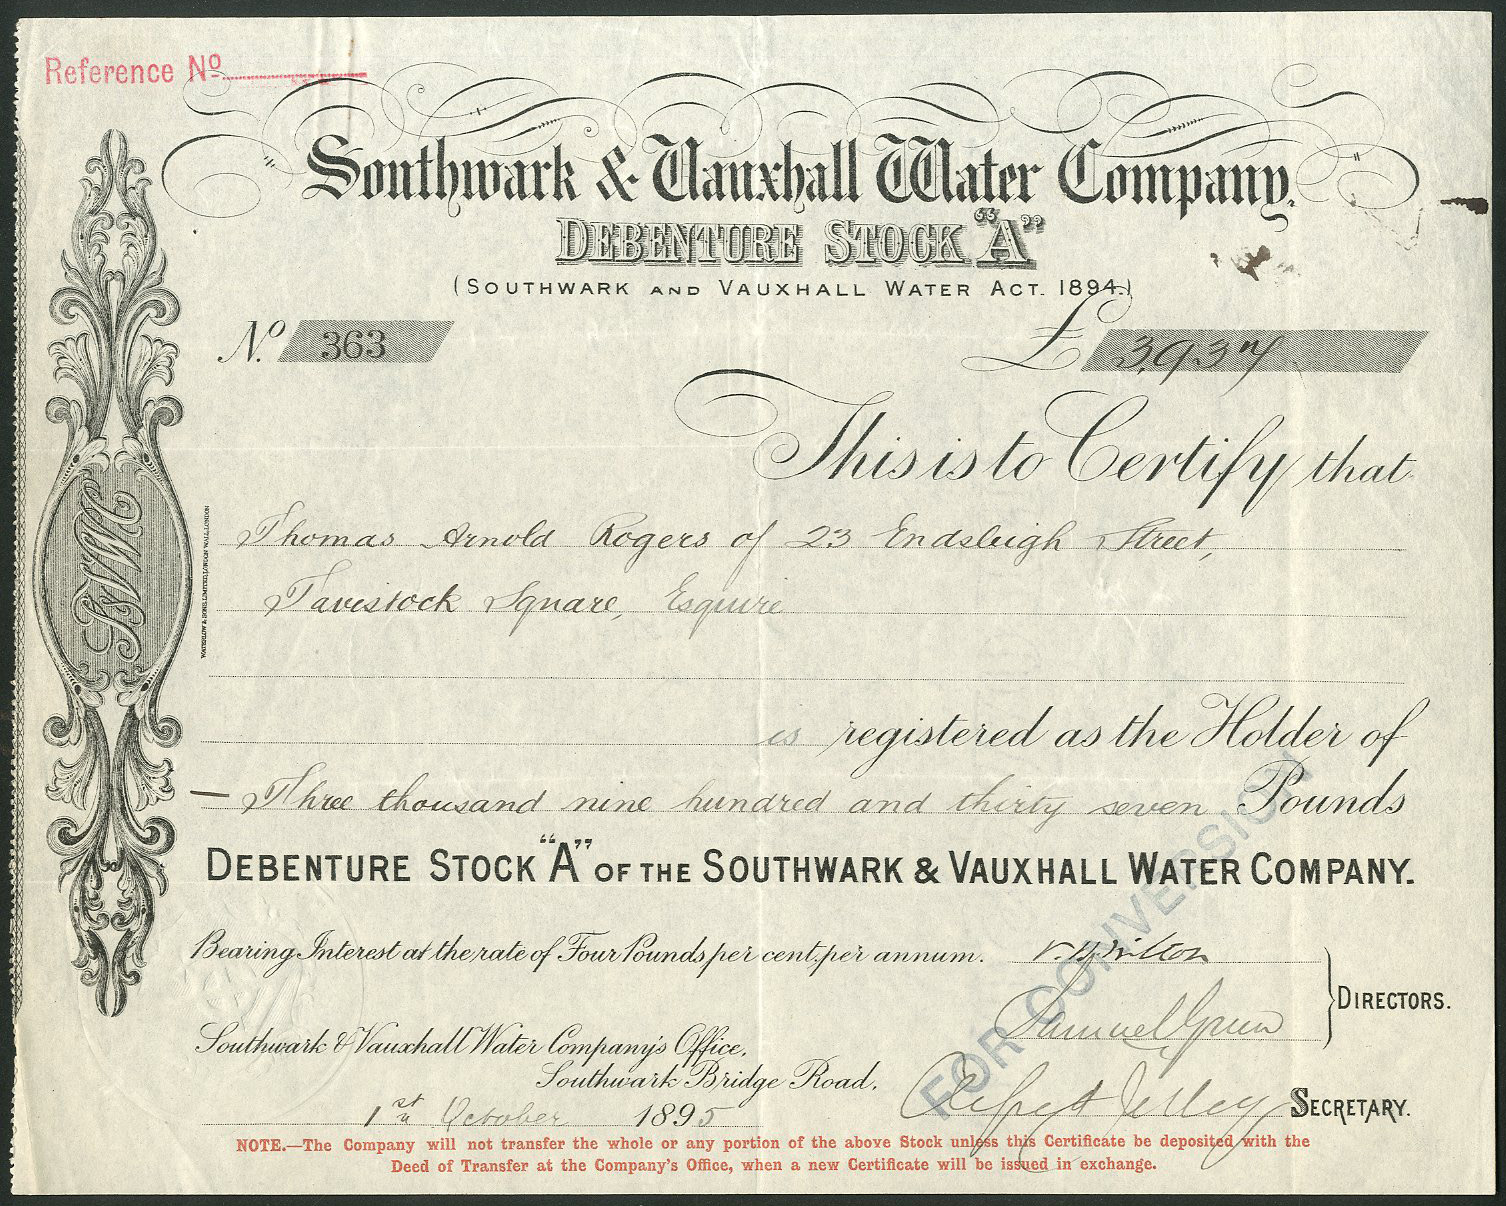 Reference No
Southwark & Vauxhall Water Company.
DEBENTURE STOCK "A"
(SOUTHWARK AND VAUXHALL WATER ACT. 1894.)
No. 363 £ 3,937
This is to Certify that
Thomas Arnold Rogers of 23 Endsleigh Street,
Tavistock Square, Esquire
is registered as the Holder of
Three thousand nine hundred and thirty seven Pounds
DEBENTURE STOCK "A" OF THE SOUTHWARK & VAUXHALL WATER COMPANY.
Bearing Interest at the rate of Four Pounds per cent, per annum.
Samuel Green
DIRECTORS.
Southwark & Vauxhall Water Company's Office,
Southwark Bridge Road.
1st October 1895
Alfred SECRETARY.
NOTE.—The Company will not transfer the whole or any portion of the above Stock unless this Certificate be deposited with the
Deed of Transfer at the Company's Office, when a new Certificate will be issued in exchange.
FOR CONVERSION
SVWC
WATERLOW & SONS LIMITED, LONDON WALL, LONDON